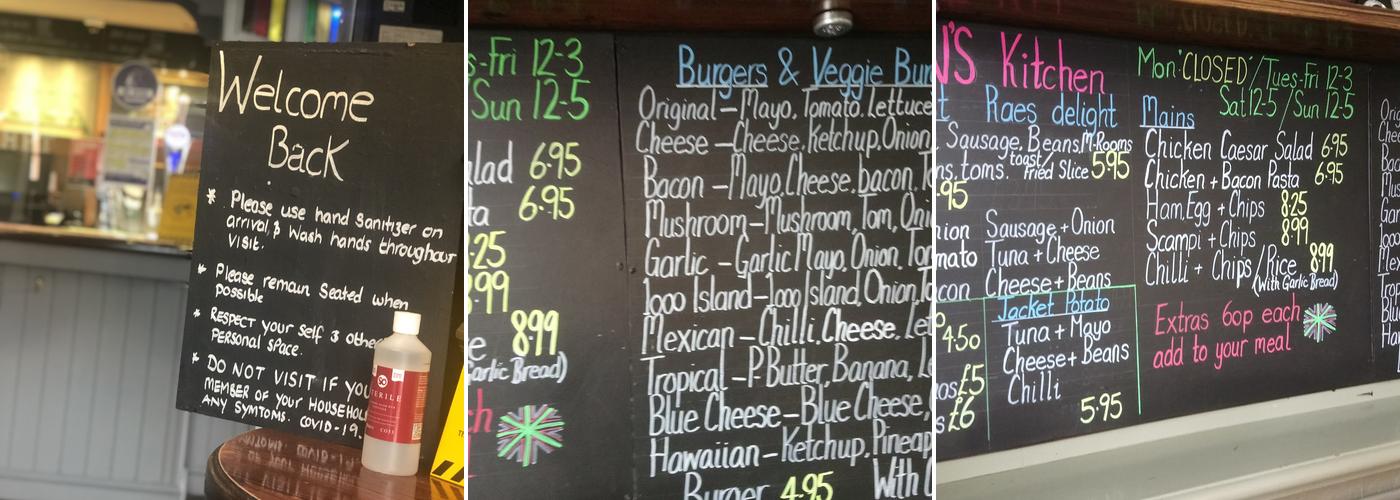 Welcome
Back
* Please use hand sanitizer on
arrival, & wash hands throughout
visit.
* Please remain seated when
possible
* RESPECT your self & other
Personal space.
* DO NOT VISIT IF YOU
MEMBER OF YOUR HOUSEHOL
ANY SYMTOMS. COVID-19.
STERILE
s-Fri 12-3
Sun 12-5
alad 6.95
ta 6.95
.25
8.99
e 8.99
Garlic Bread)
ch
Burgers & Veggie Bur
Original - Mayo, Tomato, Lettuce
Cheese - Cheese, Ketchup, Onion
Bacon - Mayo, Cheese, bacon, T
Mushroom - Mushroom, Tom, Oni
Garlic - Garlic Mayo, Onion, Tom
1000 Island - 1000 Island, Onion, T
Mexican - Chilli, Cheese, Let
Tropical - P.Butter, Banana, Le
Blue Cheese - Blue Cheese,
Hawaiian - Ketchup, Pineap
Burger 4.95 With
N'S Kitchen
t Raes delight
Sausage, Beans, M-Rooms
ns, toms. toast/Fried Slice 5.95
.95
nion Sausage + Onion
mato Tuna + Cheese
acon Cheese + Beans
Jacket Potato
4.50 Tuna + Mayo
Cheese + Beans
£5 Chilli
£6 5.95
Mon 'CLOSED' / Tues-Fri 12-3
Sat 12-5 / Sun 12-5
Mains
Chicken Caesar Salad 6.95
Chicken + Bacon Pasta 6.95
Ham, Egg + Chips 8.25
Scampi + Chips 8.99
Chilli + Chips / Rice 8.99
(With Garlic Bread)
Extras 60p each
add to your meal